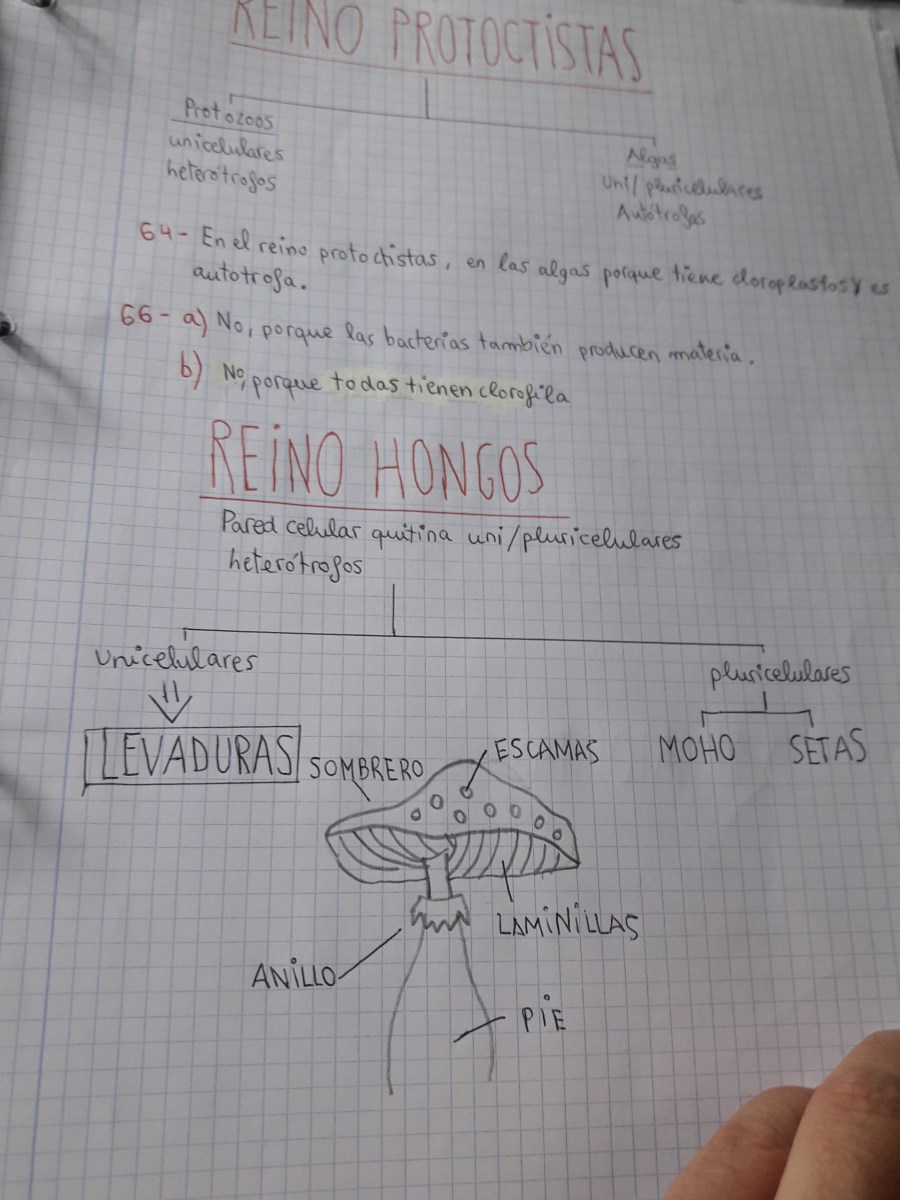 REINO PROTOCTISTAS
Protozoos
unicelulares
heterótrofos
Algas
Uni/pluricelulares
Autótrofas
64- En el reino protoctistas, en las algas porque tiene cloroplastos y es
autotrofa.
66- a) No, porque las bacterias también producen materia.
b) No, porque todas tienen clorofila
REINO HONGOS
Pared celular quitina uni/pluricelulares
heterótrofos
unicelulares
pluricelulares
LEVADURAS
MOHO
SETAS
SOMBRERO
ESCAMAS
LAMINILLAS
ANILLO
PIE